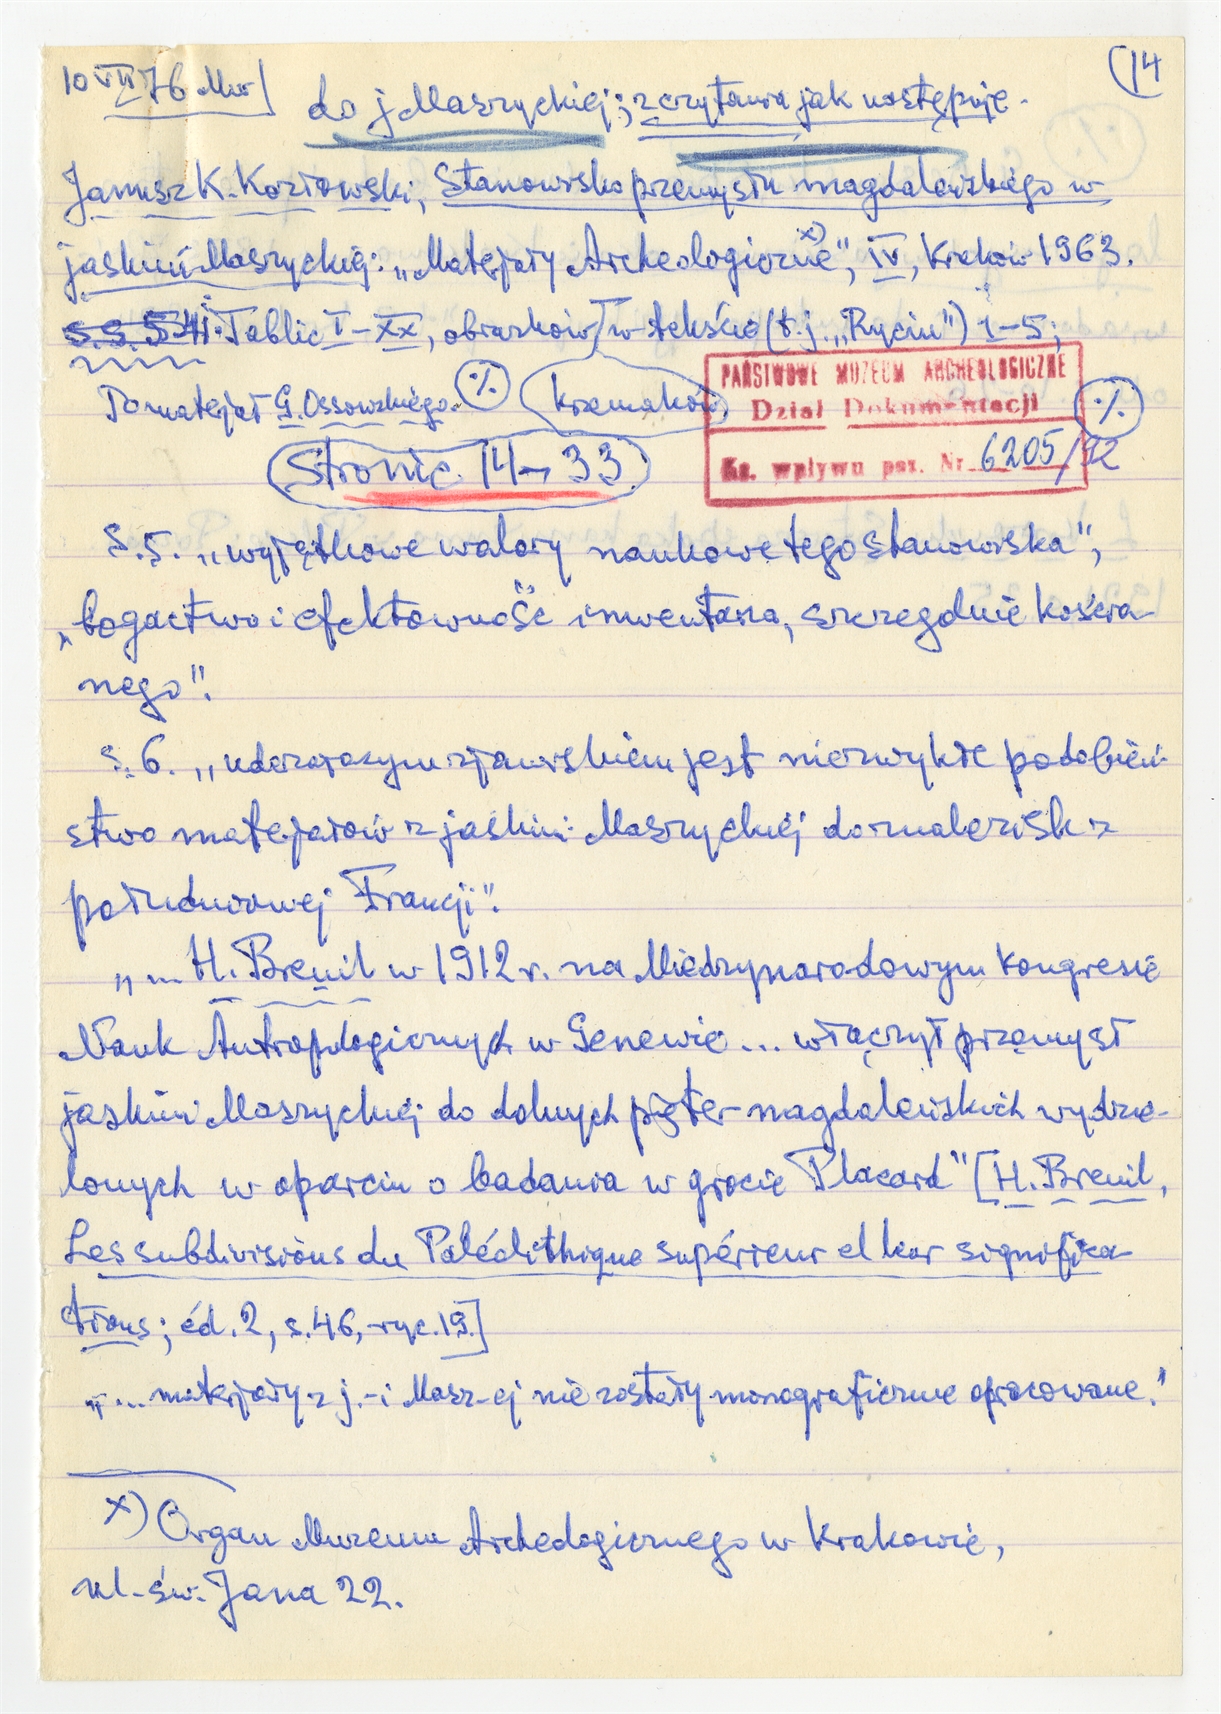 10 VII 76 Mwr
(14
do j. Maszyckiej; z czytania jak następuje.
Janusz K. Kozłowski, Stanowisko przemysłu magdaleńskiego w
jaskini Maszyckiej: „Matejały Archeologiczne x)", IV, Kraków 1963.
s. s. 5-41. Tablic I–XX, obrazków w tekście (t. j. „Rycin") 1–5;
krzemaków
Do matejał G. Ossowskiego. %
%
PAŃSTWOWE MUZEUM ARCHEOLOGICZNE
Dział Dokumentacji
Ks. wpływu poz. Nr. 6205/92
Stronic. 14–33.
S. 5. „wyjątkowe walory naukowe tego stanowiska",
„bogactwo i efektowność inwentarza, szczególnie kościa-
nego".
s. 6. „uderzającym zjawiskiem jest niezwykłe podobień-
stwo matejałów z jaskini Maszyckiej do znalezisk z
południowej Francji".
„... H. Breuil w 1912 r. na Międzynarodowym Kongresie
Nauk Antropologicznych w Genewie ... włączył przemysł
jaskini Maszyckiej do dolnych pięter magdaleńskich wydzie-
lonych w oparciu o badania w grocie Placard" [H. Breuil,
Les subdivisions du Paléolithique supérieur et leur significa-
tions; éd. 2, s. 46, ryc. 19.]
„... matejały z j.-i Masz-ej nie zostały monograficznie opracowane."
x) Organ Muzeum Archeologicznego w Krakowie,
ul. św. Jana 22.